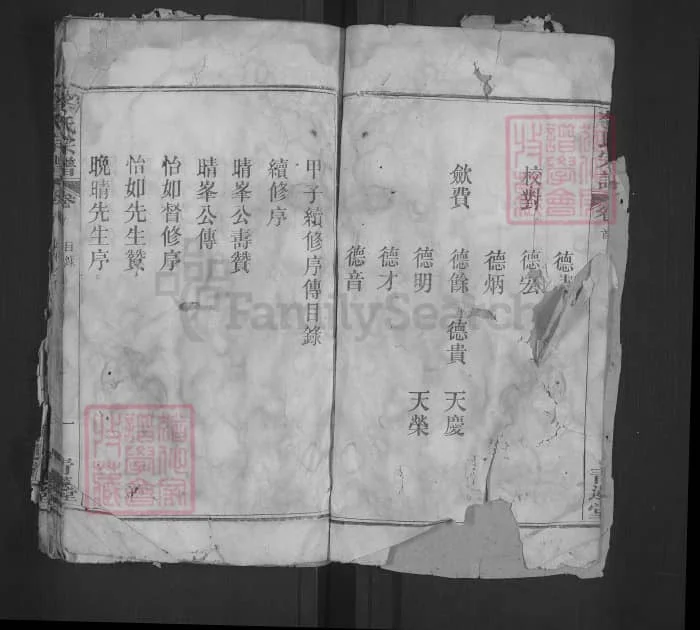 校對
德宏
德炳
歛費
德餘 德貴 天慶
德明 天榮
德才
德音
甲子續修序傳目錄
續修序
晴峯公壽贊
晴峯公傳
怡如督修序
怡如先生贊
晚晴先生序
氏宗譜
目錄
一
青蓮堂
FamilySearch